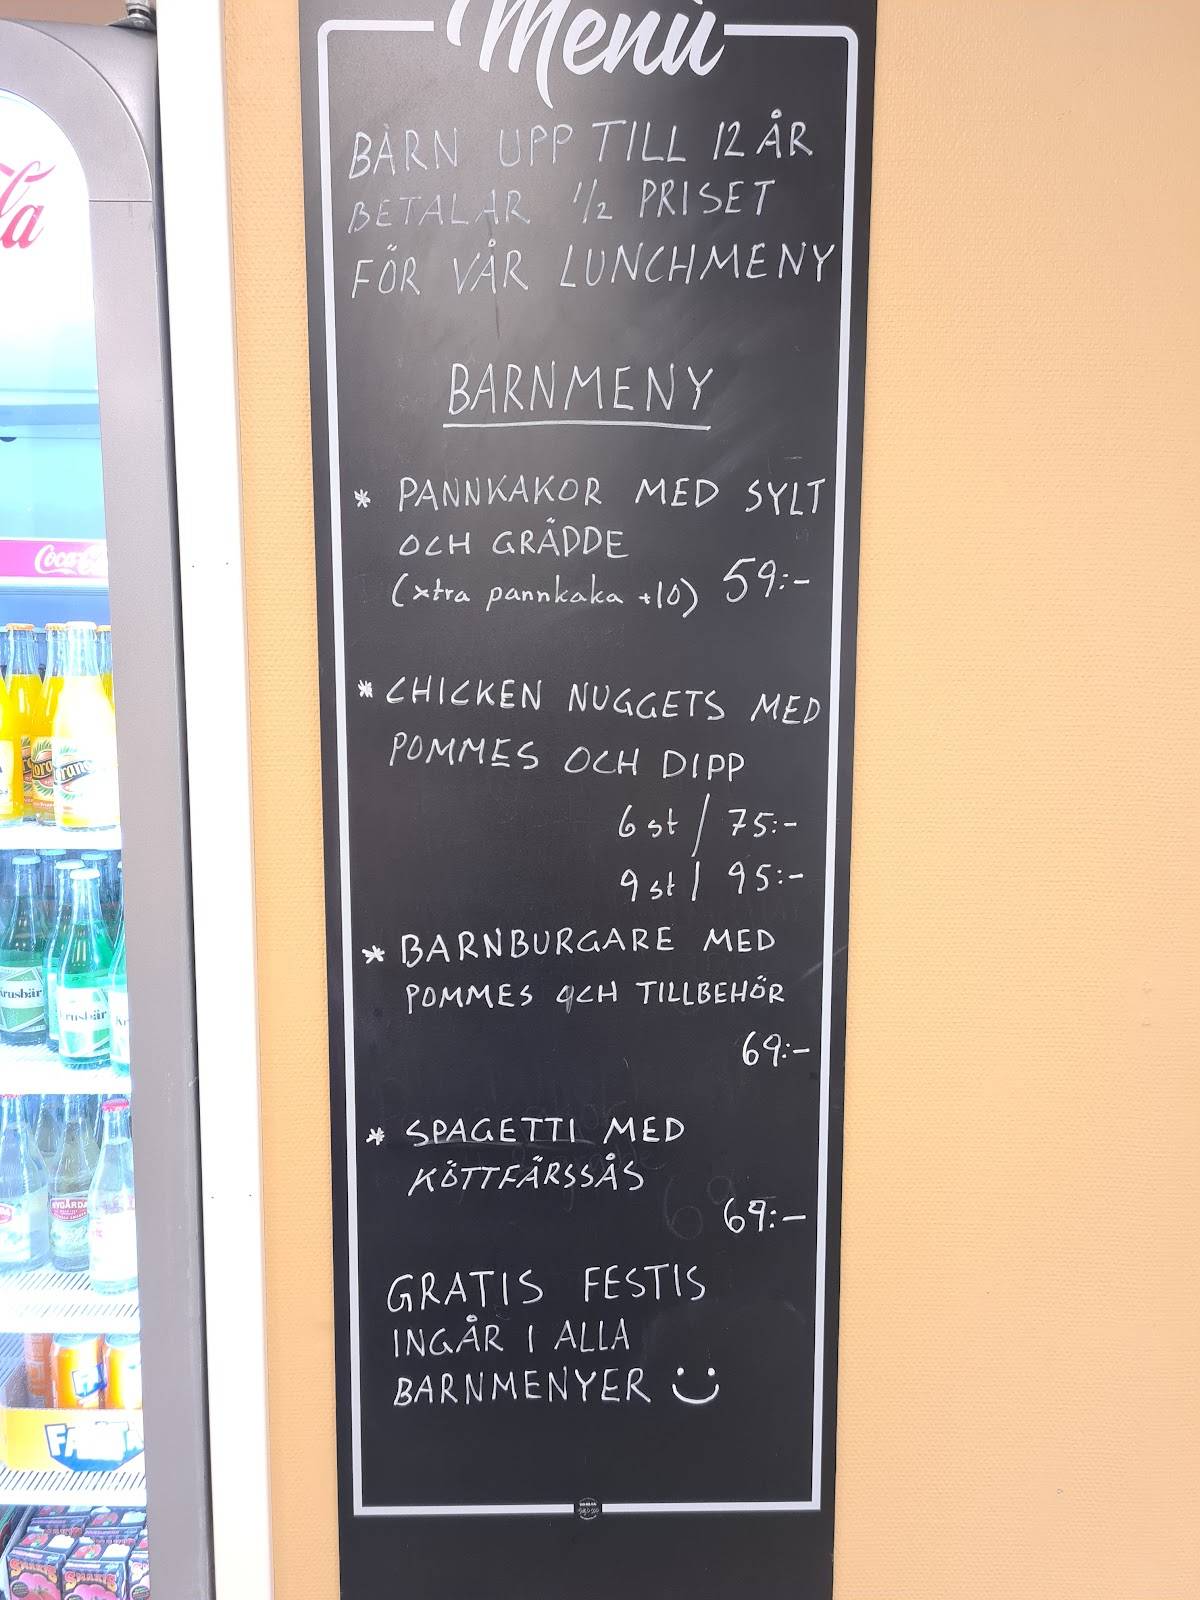 Menù
BARN UPP TILL 12 ÅR
BETALAR 1/2 PRISET
FÖR VÅR LUNCHMENY
BARNMENY
* PANNKAKOR MED SYLT
OCH GRÄDDE
(xtra pannkaka +10) 59:-
* CHICKEN NUGGETS MED
POMMES OCH DIPP
6 st / 75:-
9 st / 95:-
* BARNBURGARE MED
POMMES OCH TILLBEHÖR
69:-
* SPAGETTI MED
KÖTTFÄRSSÅS
69:-
GRATIS FESTIS
INGÅR I ALLA
BARNMENYER
la
Coca-Co
Krusbär
Krusbär
NYGÅRDA
FANTA
SMAKIS